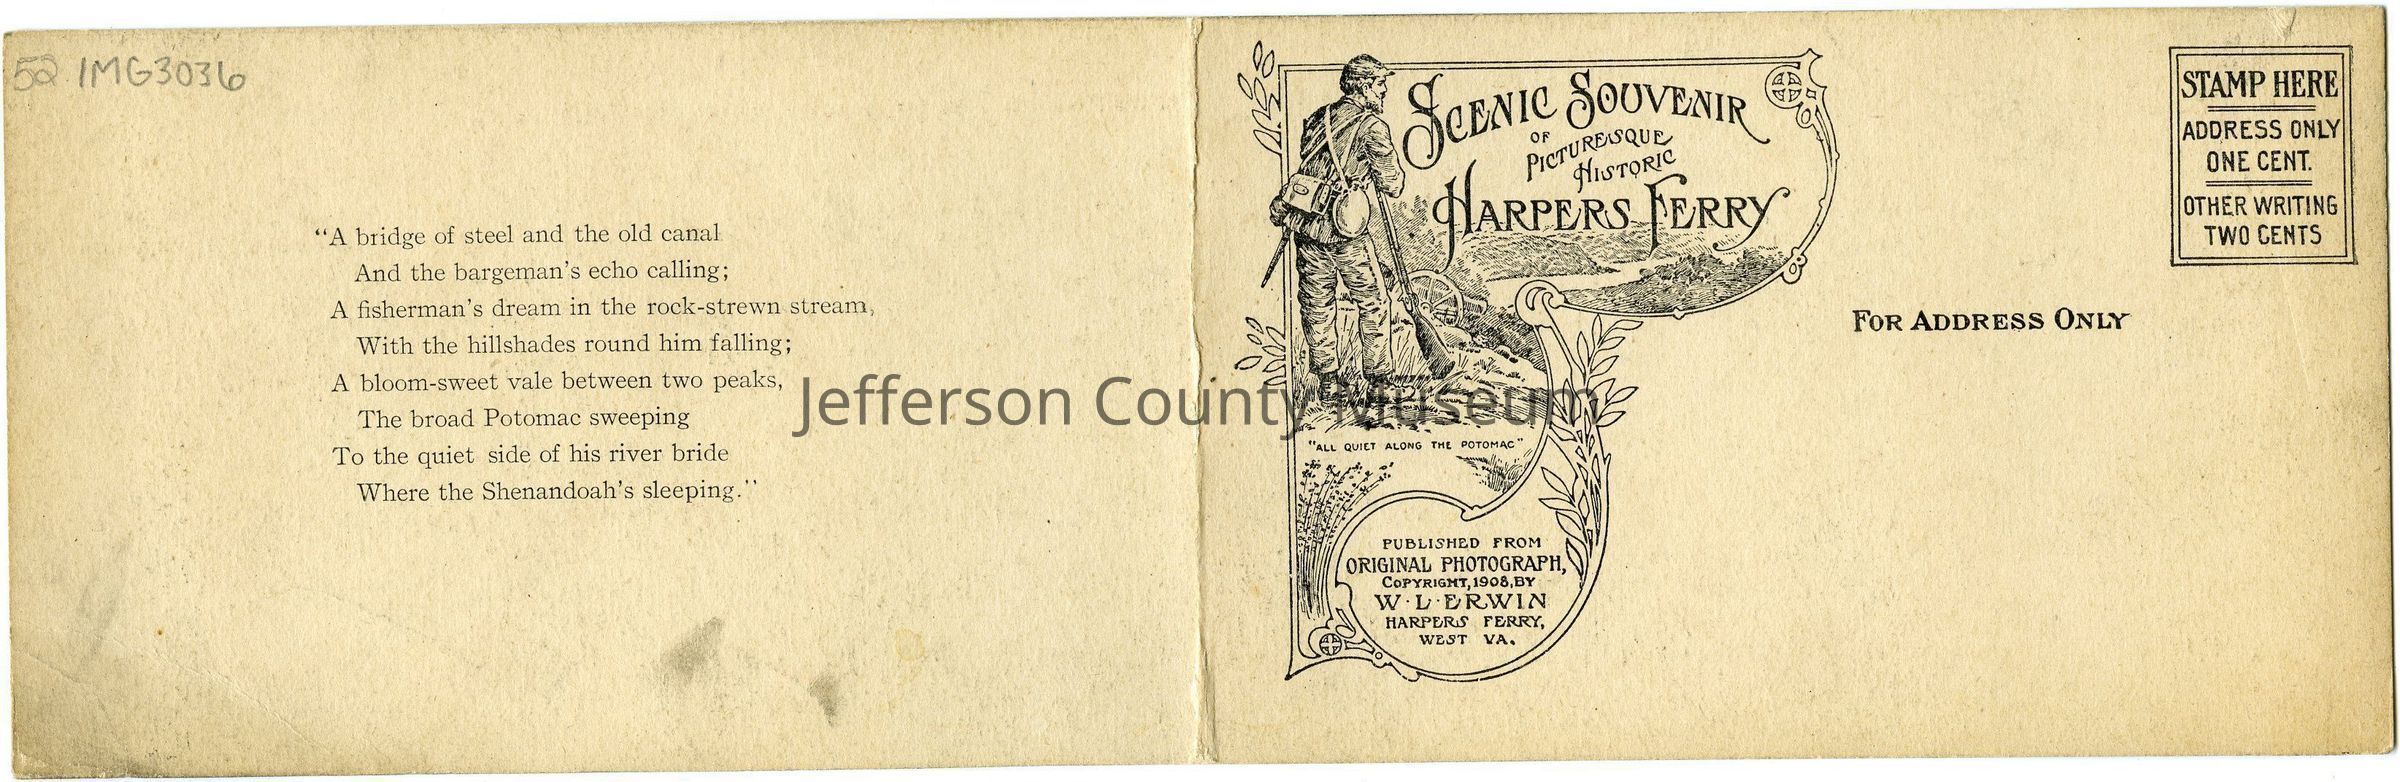 52 IMG3036
“A bridge of steel and the old canal
And the bargeman’s echo calling;
A fisherman’s dream in the rock-strewn stream,
With the hillshades round him falling;
A bloom-sweet vale between two peaks,
The broad Potomac sweeping
To the quiet side of his river bride
Where the Shenandoah’s sleeping.”
Jefferson County Museum
SCENIC SOUVENIR
OF
PICTURESQUE
HISTORIC
HARPERS FERRY
"ALL QUIET ALONG THE POTOMAC"
PUBLISHED FROM
ORIGINAL PHOTOGRAPH,
COPYRIGHT, 1908, BY
W. L. ERWIN
HARPERS FERRY,
WEST VA.
STAMP HERE
ADDRESS ONLY
ONE CENT.
OTHER WRITING
TWO CENTS
FOR ADDRESS ONLY